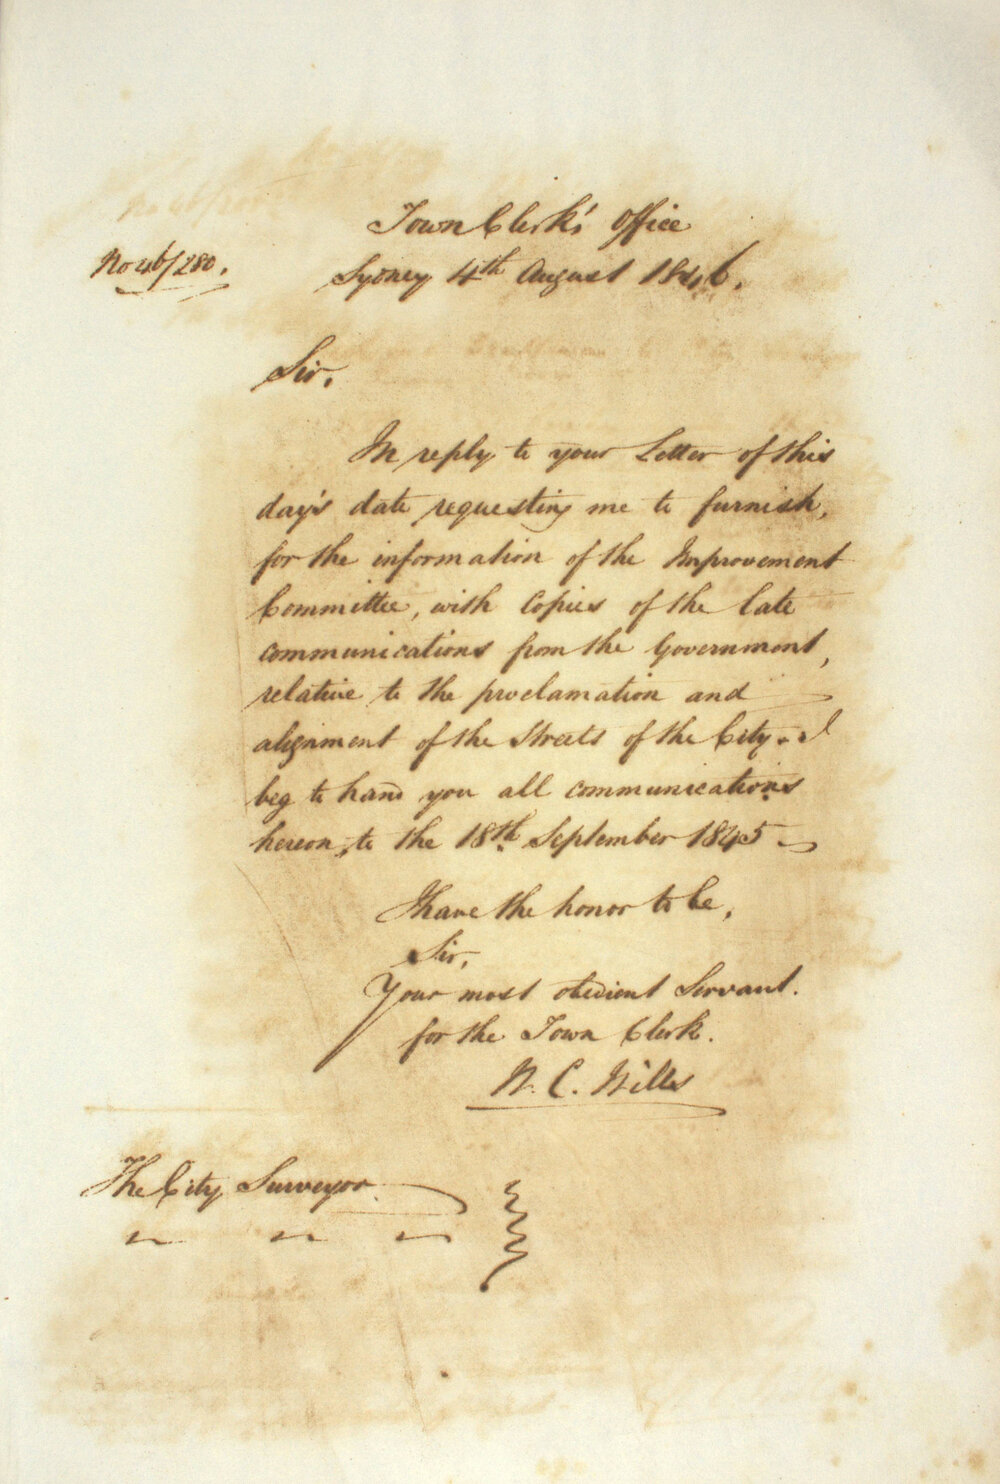 Town Clerk's Office
No 46/280.
Sydney 4th August 1846.
Sir,
In reply to your Letter of this
day's date requesting me to furnish,
for the information of the Improvement
Committee, with Copies of the late
communications from the Government,
relative to the proclamation and
alignment of the Streets of the City - I
beg to hand you all communications
hereon, to the 18th September 1845
I have the honor to be,
Sir,
Your most obedient Servant.
for the Town Clerk.
W. C. Wills
The City Surveyor